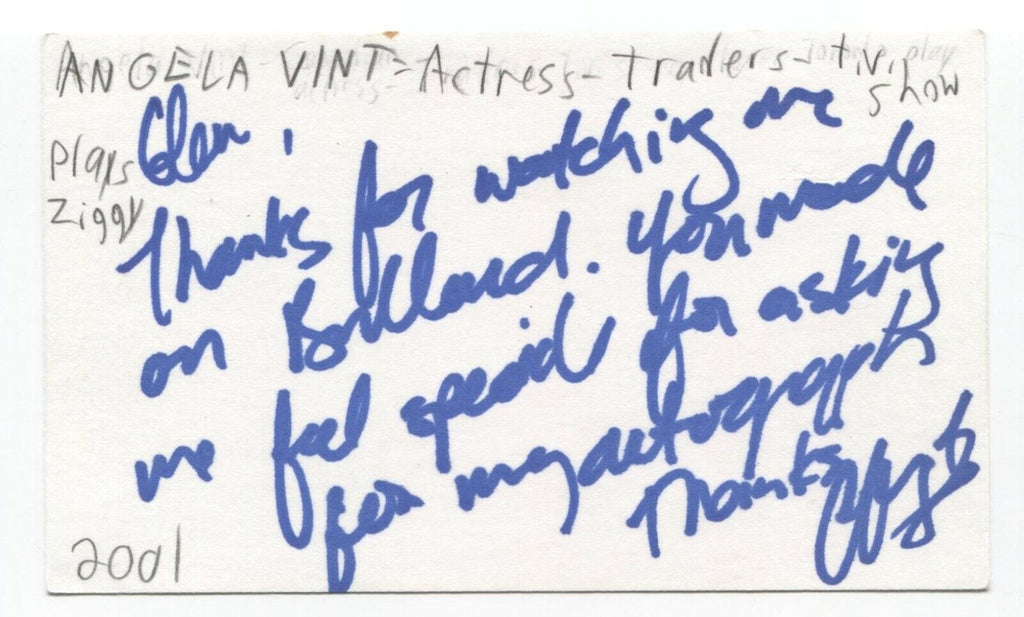 ANGELA VINT - Actress - Traders - t.v. show
plays Ziggy
Glen,
Thanks for watching me
on . You made
me feel special for asking
for my autograph
Thanks
2001